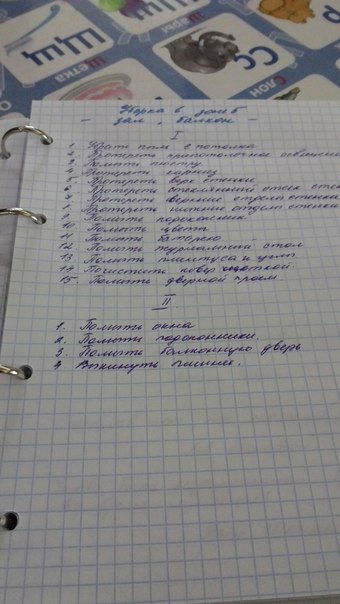 Щ щ
С с
Щётка
Слон
Шары
Уборка в доме
- зал, балкон -
I
1. Убрать пыль с потолка
2. Протереть припотолочное освещение
3. Помыть люстру
4. Протереть карниз
5. Протереть верх стенки
6. Протереть стеклянный отсек стенки
7. Протереть верхние отделы стенки
8. Протереть нижние отделы стенки
9. Помыть подоконник
10 Помыть цветы
11 Помыть батарею
12 Помыть журнальный стол
13 Помыть плинтуса и углы
14 Почистить ковёр щёткой
15 Помыть дверной проём
II
1. Помыть окна
2. Помыть подоконники.
3. Помыть балконную дверь
4 Выкинуть лишнее.